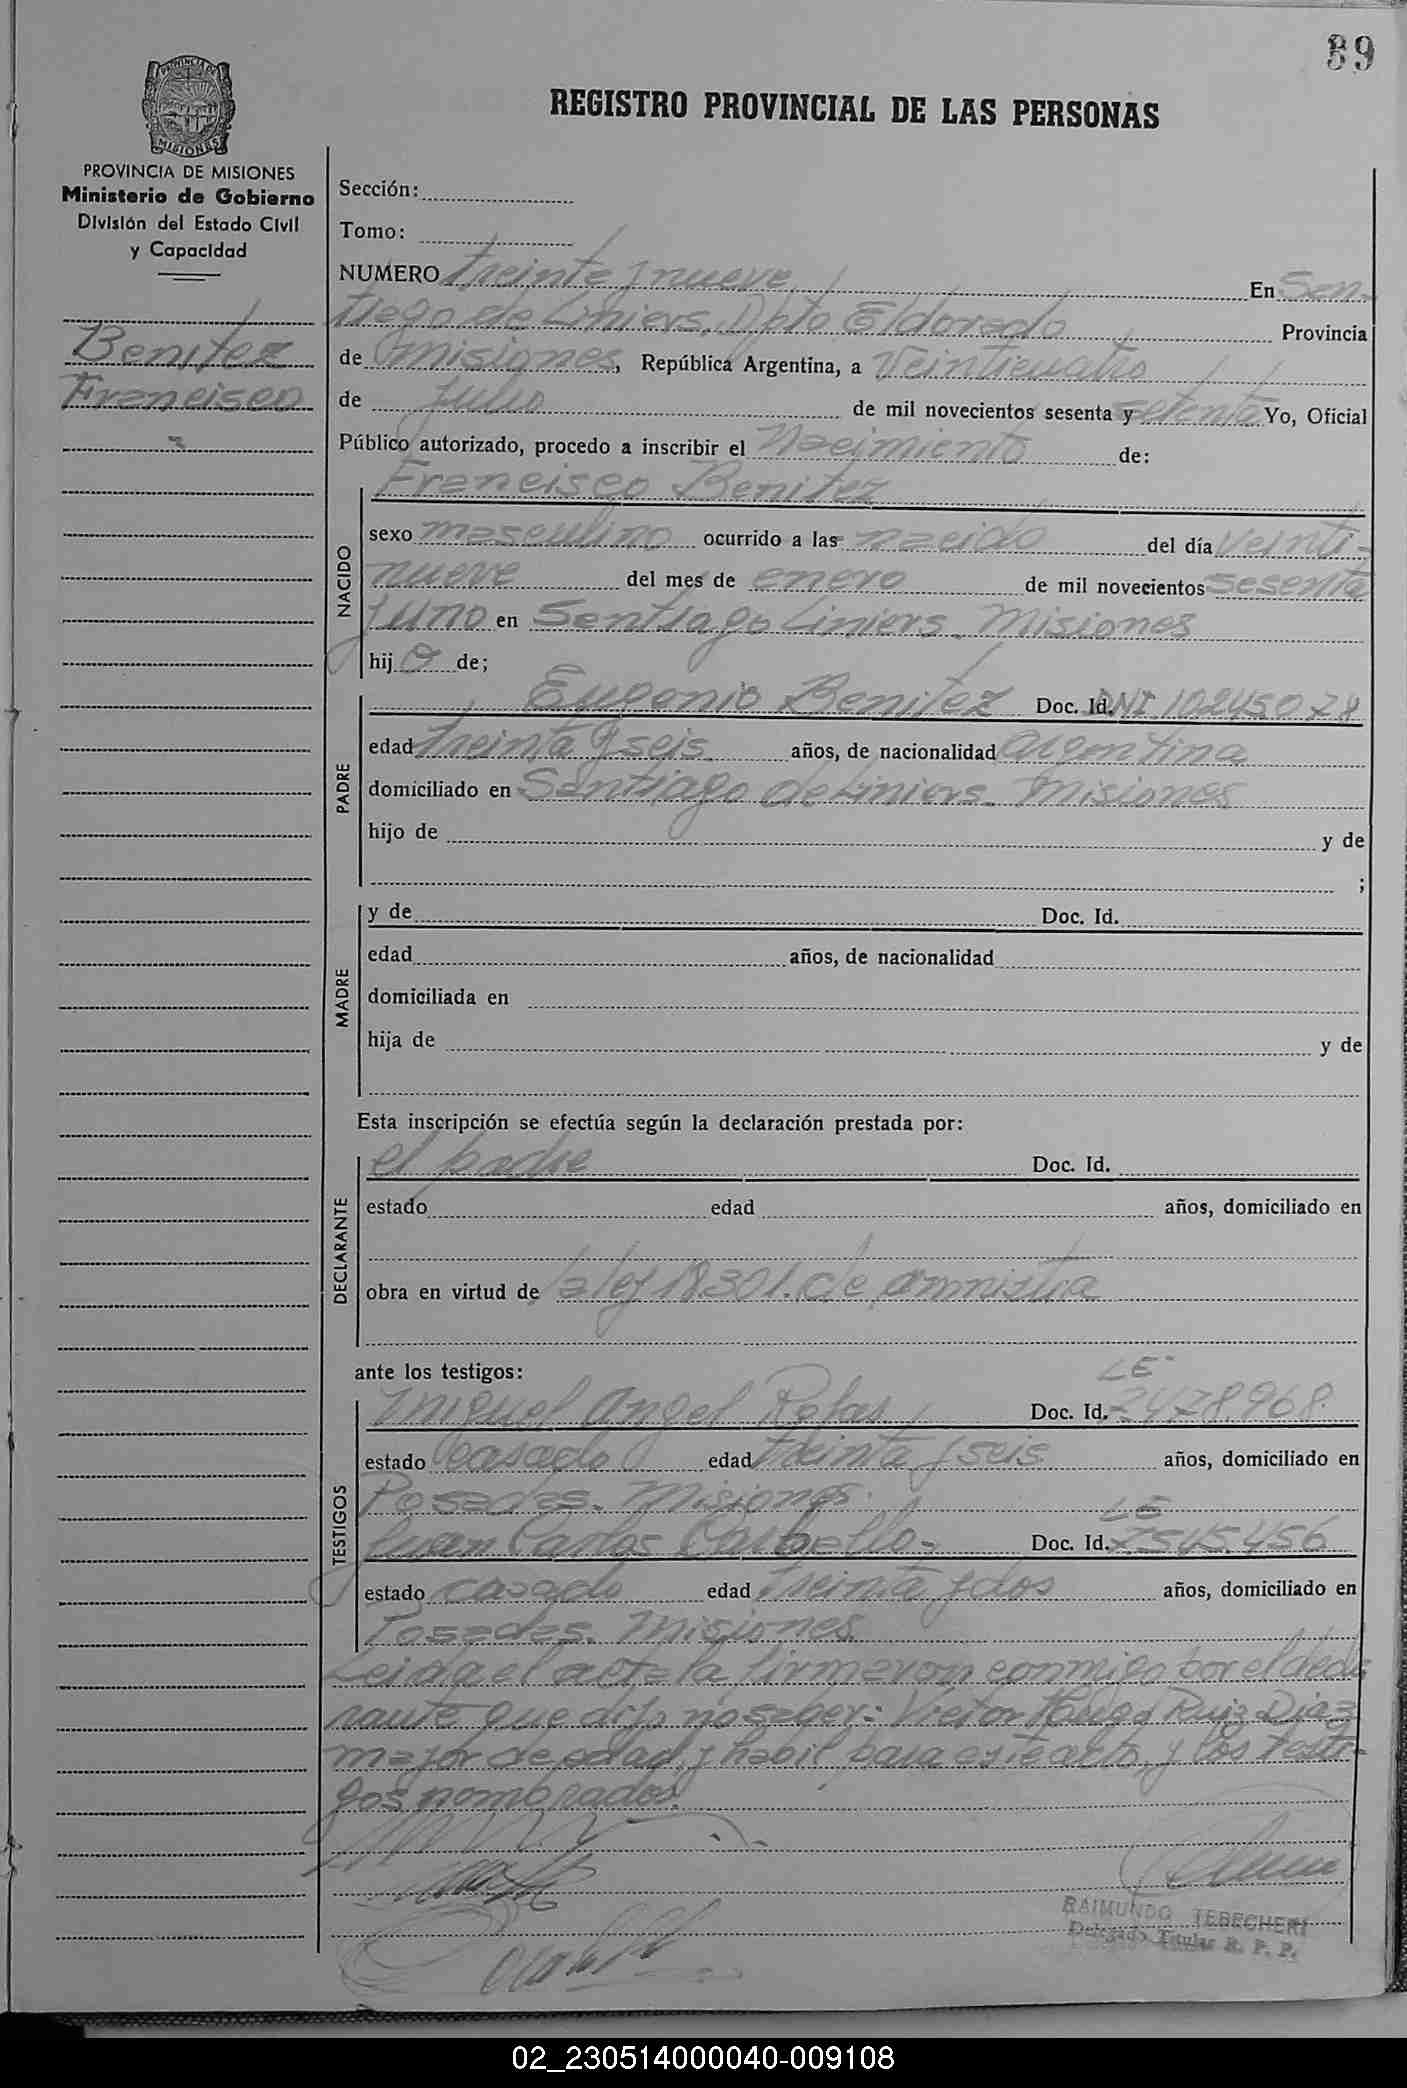 39
REGISTRO PROVINCIAL DE LAS PERSONAS
PROVINCIA DE MISIONES
Ministerio de Gobierno
División del Estado Civil
y Capacidad
Benitez
Francisco
Sección:
Tomo:
NUMERO treinta y nueve En San-
tiago de Liniers, Dpto Eldorado Provincia
de Misiones, República Argentina, a Veinticuatro
de Julio de mil novecientos sesenta y setenta Yo, Oficial
Público autorizado, procedo a inscribir el Nacimiento de:
Francisco Benitez
NACIDO
sexo masculino ocurrido a las nacido del día veinti-
nueve del mes de enero de mil novecientos sesenta
y uno en Santiago Liniers. Misiones
hijo de;
PADRE
Eugenio Benitez Doc. Id. DNI 10245078
edad treinta y seis años, de nacionalidad argentina
domiciliado en Santiago de Liniers. Misiones
hijo de y de
;
MADRE
y de Doc. Id.
edad años, de nacionalidad
domiciliada en
hija de y de
Esta inscripción se efectúa según la declaración prestada por:
DECLARANTE
el padre Doc. Id.
estado edad años, domiciliado en
obra en virtud de la ley 18301. de amnistia
ante los testigos:
TESTIGOS
LE
Miguel Angel Doc. Id. 7478968
estado casado edad treinta y seis años, domiciliado en
Posadas. Misiones.
LE
Juan Carlos Doc. Id. 7545.456
estado casado edad treinta y dos años, domiciliado en
Posadas. Misiones
Leida el acta la firmaron conmigo por el decla
rante que dijo no saber: Victor Hugo Ruiz Diaz
mayor de edad y habil para este acto, y los testi-
gos nombrados.
RAIMUNDO TEBECHERI
Delegado Titular R. P. P.
02_230514000040-009108